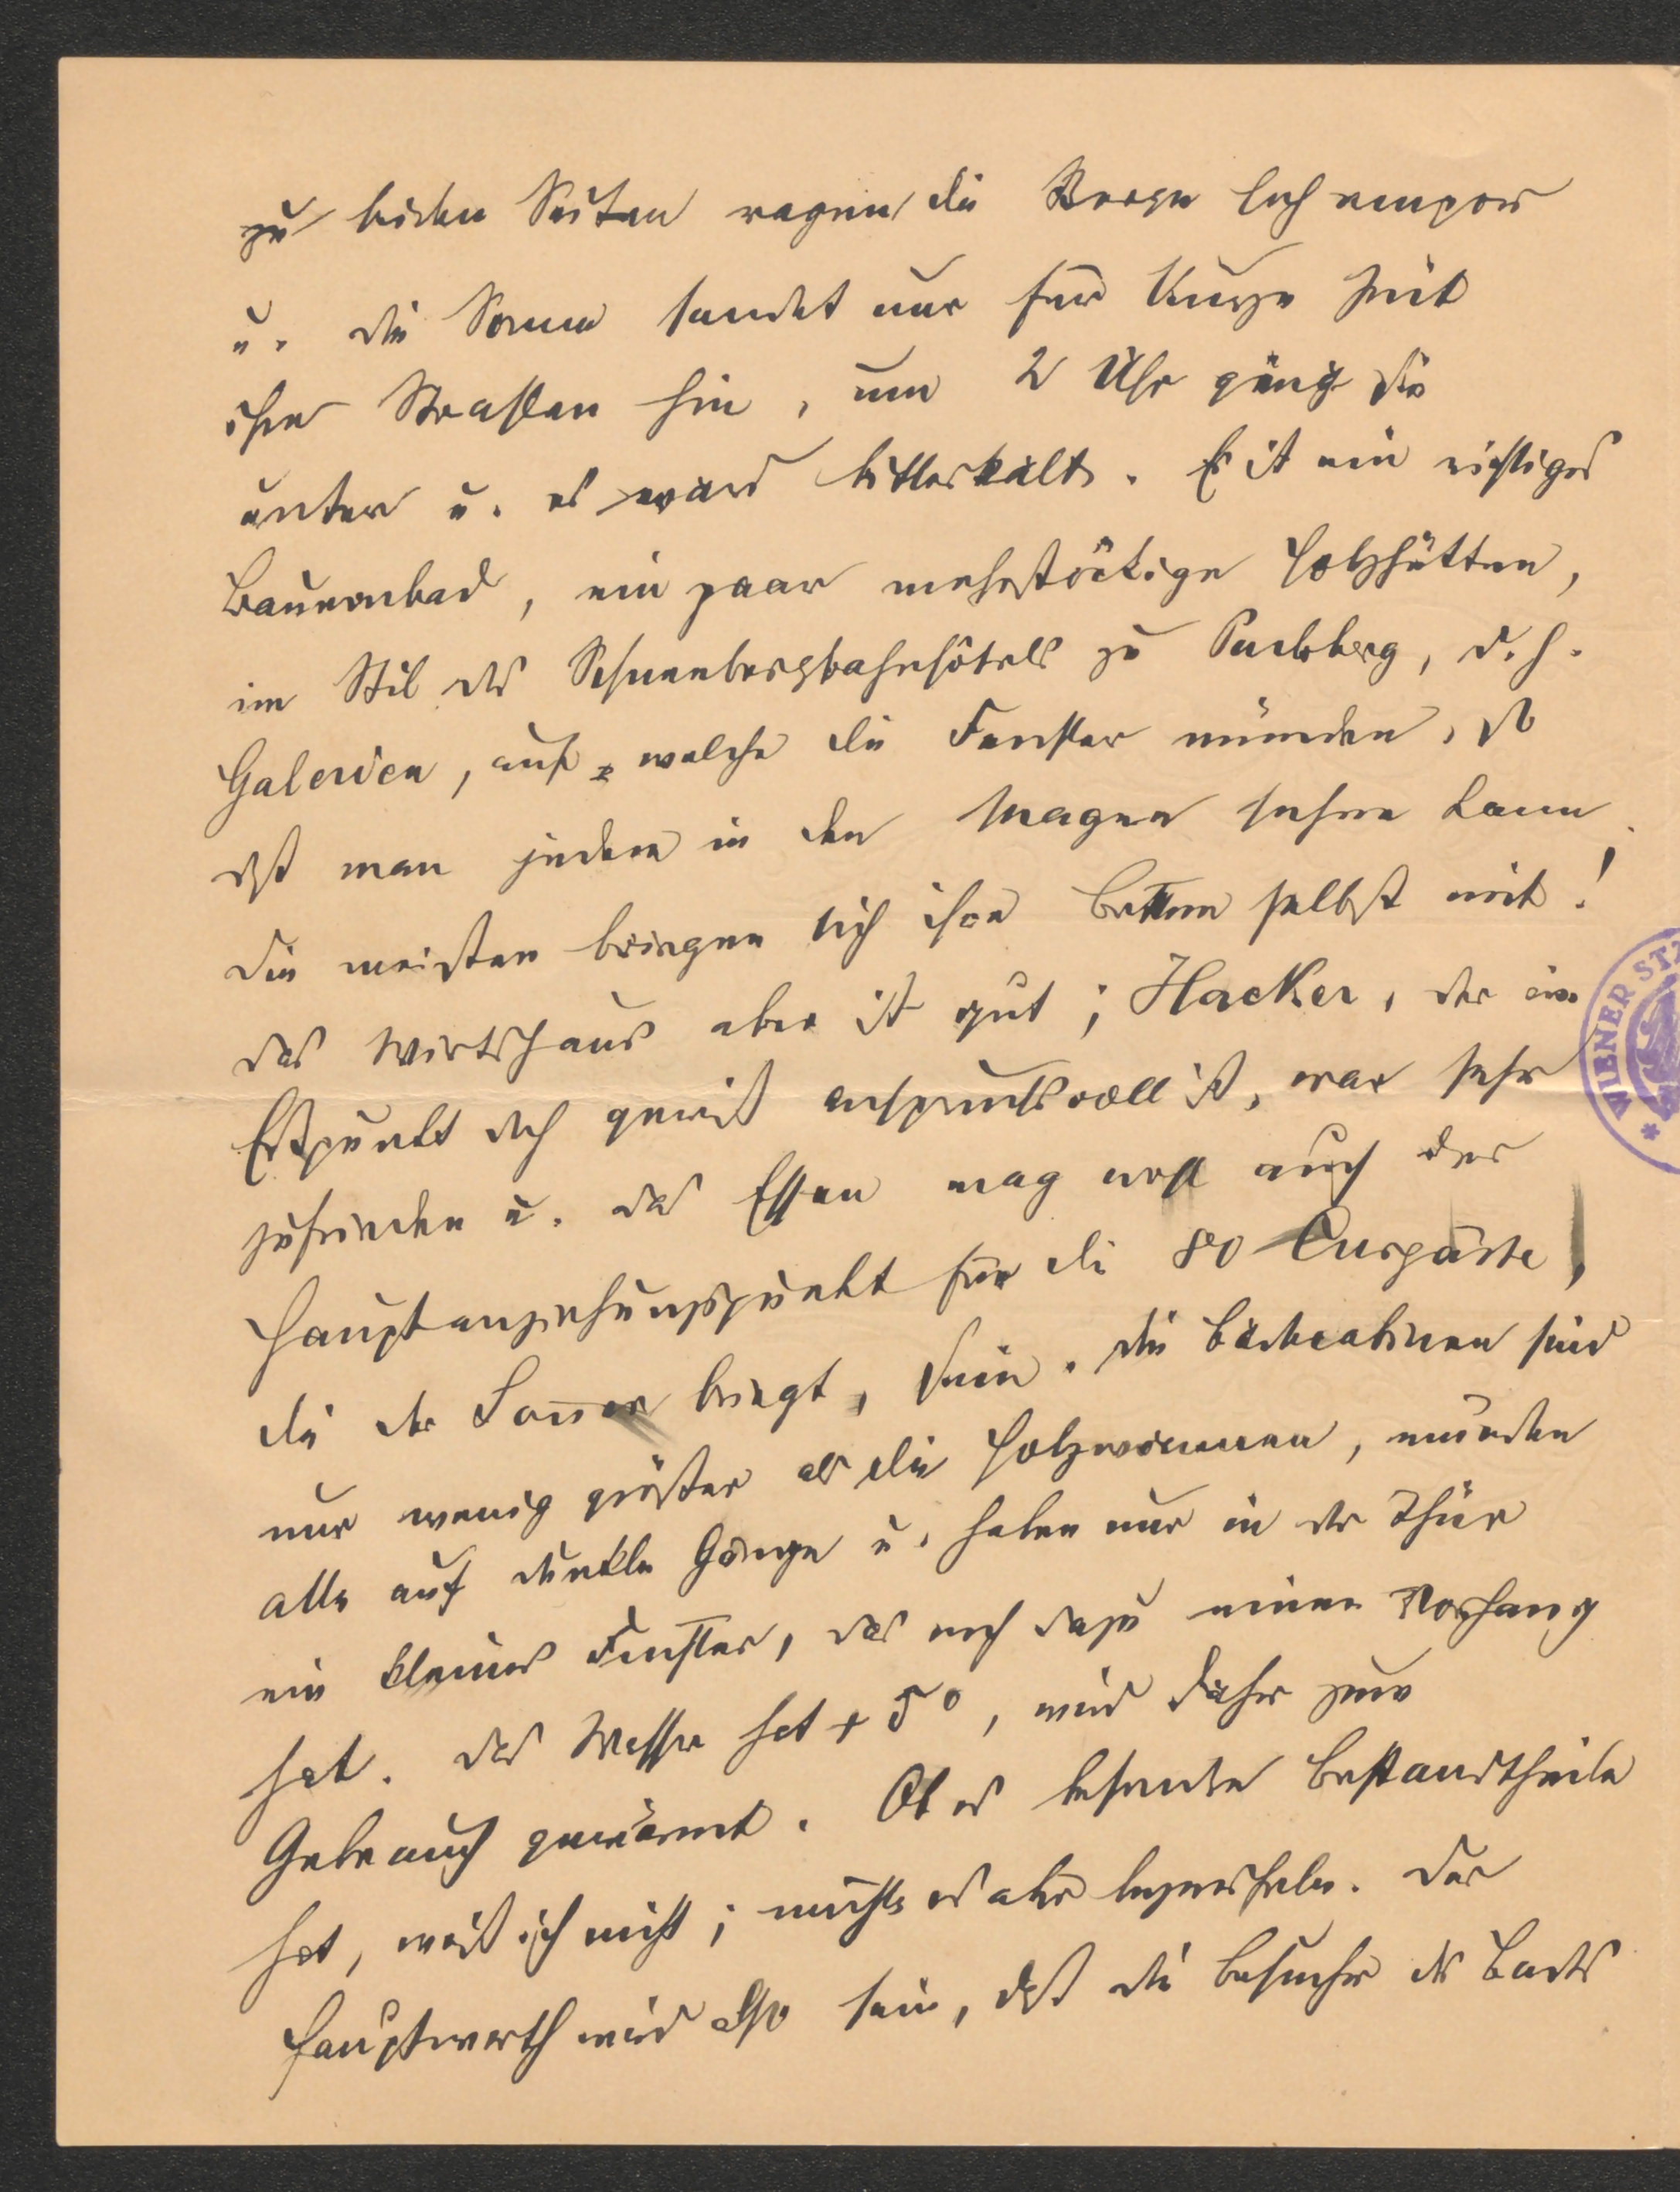 zu beiden Seiten ragen die Berge hoch empor
u. die Sonne sendet nur für kurze Zeit
ihre Strahlen hin, um 2 Uhr gieng sie
unter u. es ward bitterkalt. Es ist ein richtiges
Bauernbad, ein paar mehrstöckige Holzhütten,
im Stil des Schneebergbahnhôtels zu Puchberg, d. h.
Galerien, auf welche die Fenster münden, so
dß man jedem in den Magen sehen kann.
Die meisten bringen sich ihre Betten selbst mit!
Das Wirtshaus aber ist gut; Hacker, der im
Eßpunkt doch gewiß anspruchsvoll ist, war sehr
zufrieden u. das Essen mag wohl auch der
Hauptanziehungspunkt für die 80 Curgäste,
die der Sommer bringt, sein. Die Badecabinen sind
nur wenig größer als die Holzwannen, münden
alle auf dunkle Gänge u. haben nur in der Thür
ein kleines Fenster, das noch dazu einen Vorhang
hat. Das Wasser hat + 5°, wird daher zum
Gebrauch gewärmt. Ob es besondre Bestandtheile
hat, weiß ich nicht; möchte es aber bezweifeln. Der
Hauptwerth wird also sein, dß die Besucher des Bades
WIENER ST